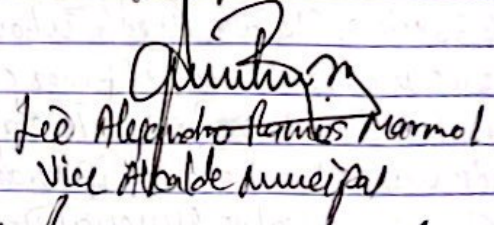 Alejandro Ramos Marmol
Vice Alcalde Municipal